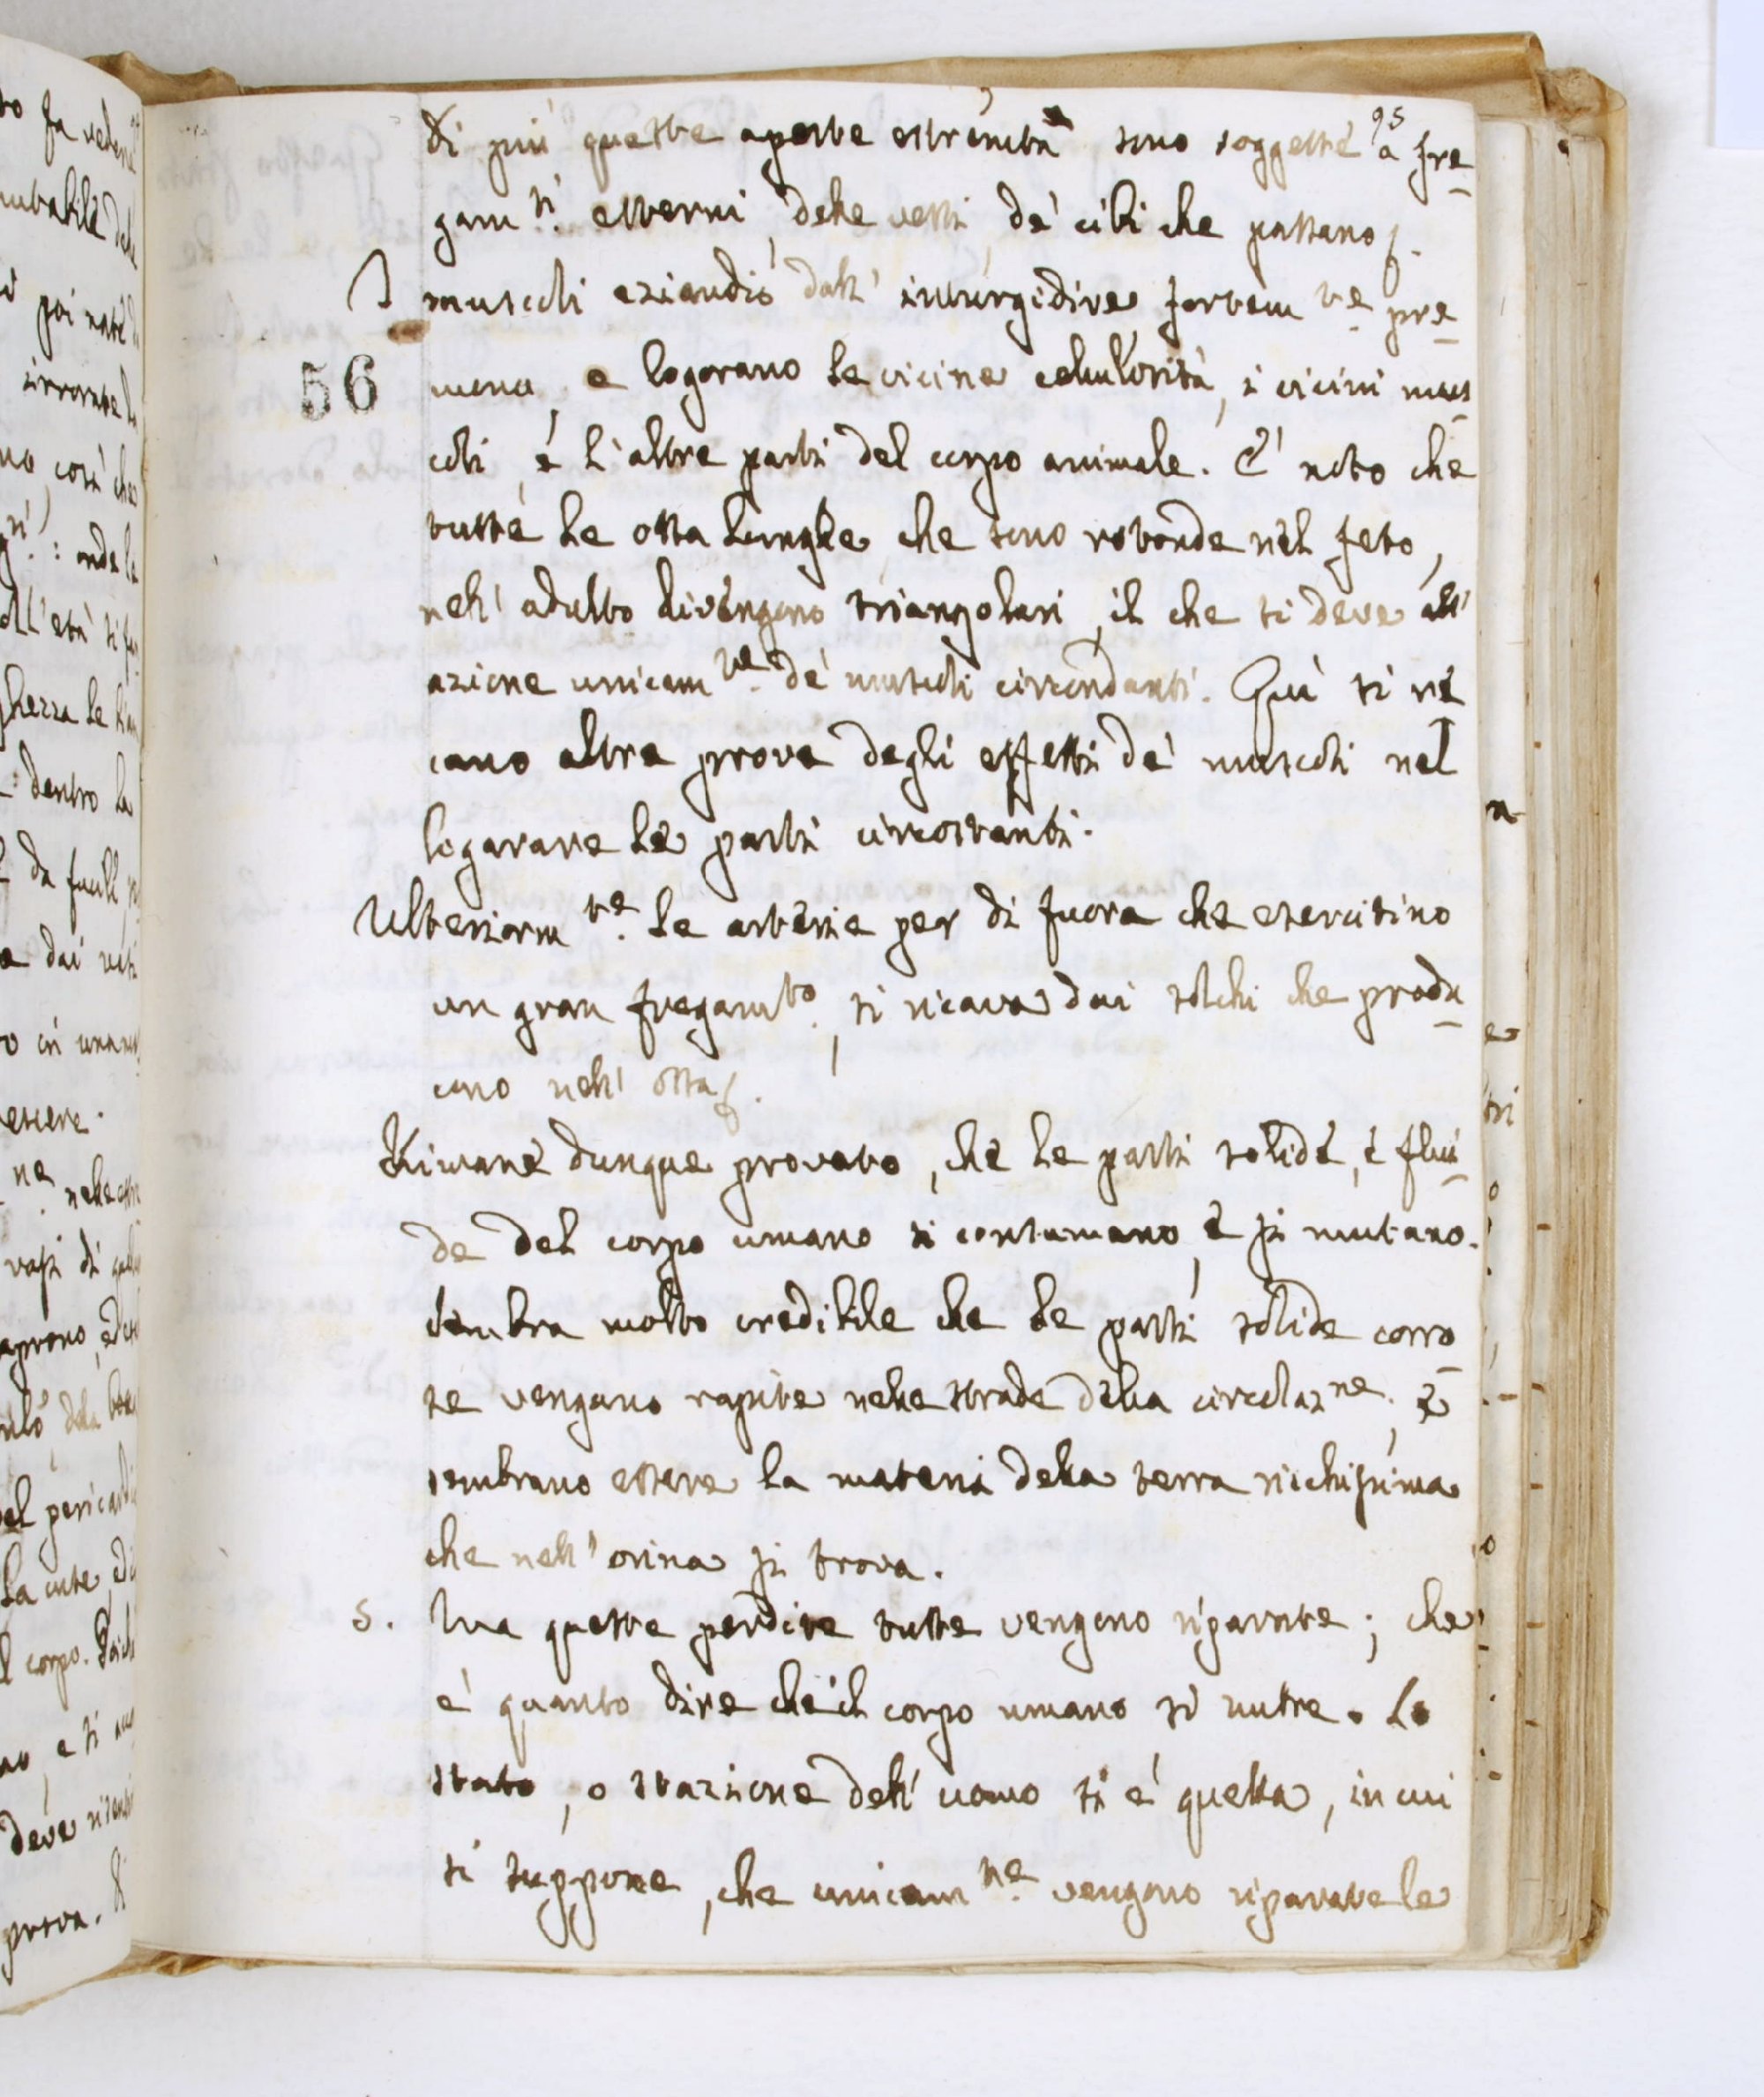 95
Di più queste aperte estremità sono soggette a fre
gam.ti esterni, delle vesti, de' cibi che passano
I muscoli eziandio dall' inturgidire fortem.te pre
56
mono, e logorano le vicine cellulosità, i vicini mus
coli, e l'altre parti del corpo animale. E' noto che
tutte le ossa lunghe, che sono rotonde nel feto,
nell' adulto divengono triangolari, il che si deve all'
azione unicam.te de' muscoli circondanti. Quì si re
cano altre prove degli effetti de' muscoli nel
logorare le parti circostanti.
Ulteriorm.te le arterie per di fuora che esercitino
un gran fregam.to, si ricava dai solchi che produ
cono nell' ossa
Rimane dunque provato, che le parti solide, e flui
de del corpo umano si consumano, e si mutano.
Sembra molto credibile che le parti solide corro
se vengano rapite nelle strade della circolaz.ne, e
sembrano essere la materia della terra ricchissima
che nell' orina si trova.
5. Ma queste perdite tutte vengono riparate; che
e' quanto dire che il corpo umano si nutre. Lo
stato, o stazione dell' uomo si e' quella, in cui
si suppone, che unicam.ne vengono riparate le